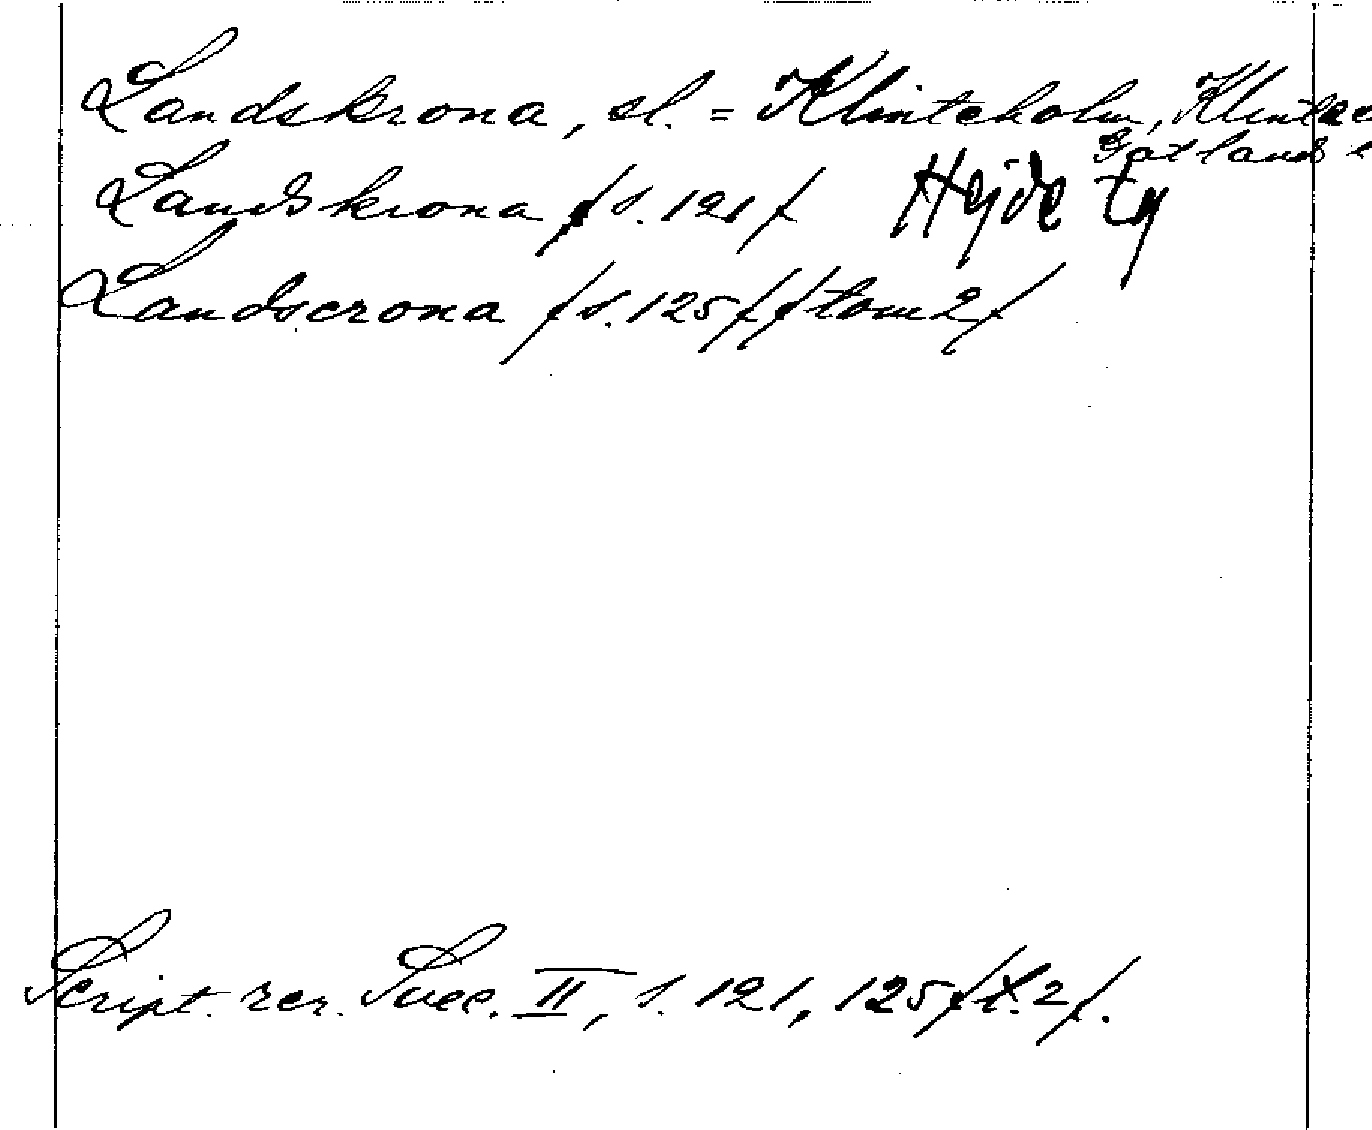 Landskrona, sl. = Klinteholm, Klinte
Gotlands
Landskrona /s. 121/ Hejde
Landscrona /s. 125/ /tom 2/
Script. rer. Svec. II, s. 121, 125 /t. 2/.